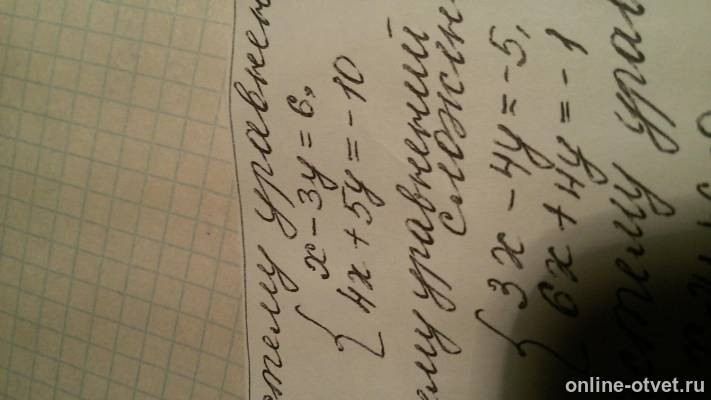 стему уравнен
x - 3y = 6,
4x + 5y = -10
ему уравнений
сложен
3x - 4y = -5,
6x + 4y = -1
стему урав
online-otvet.ru